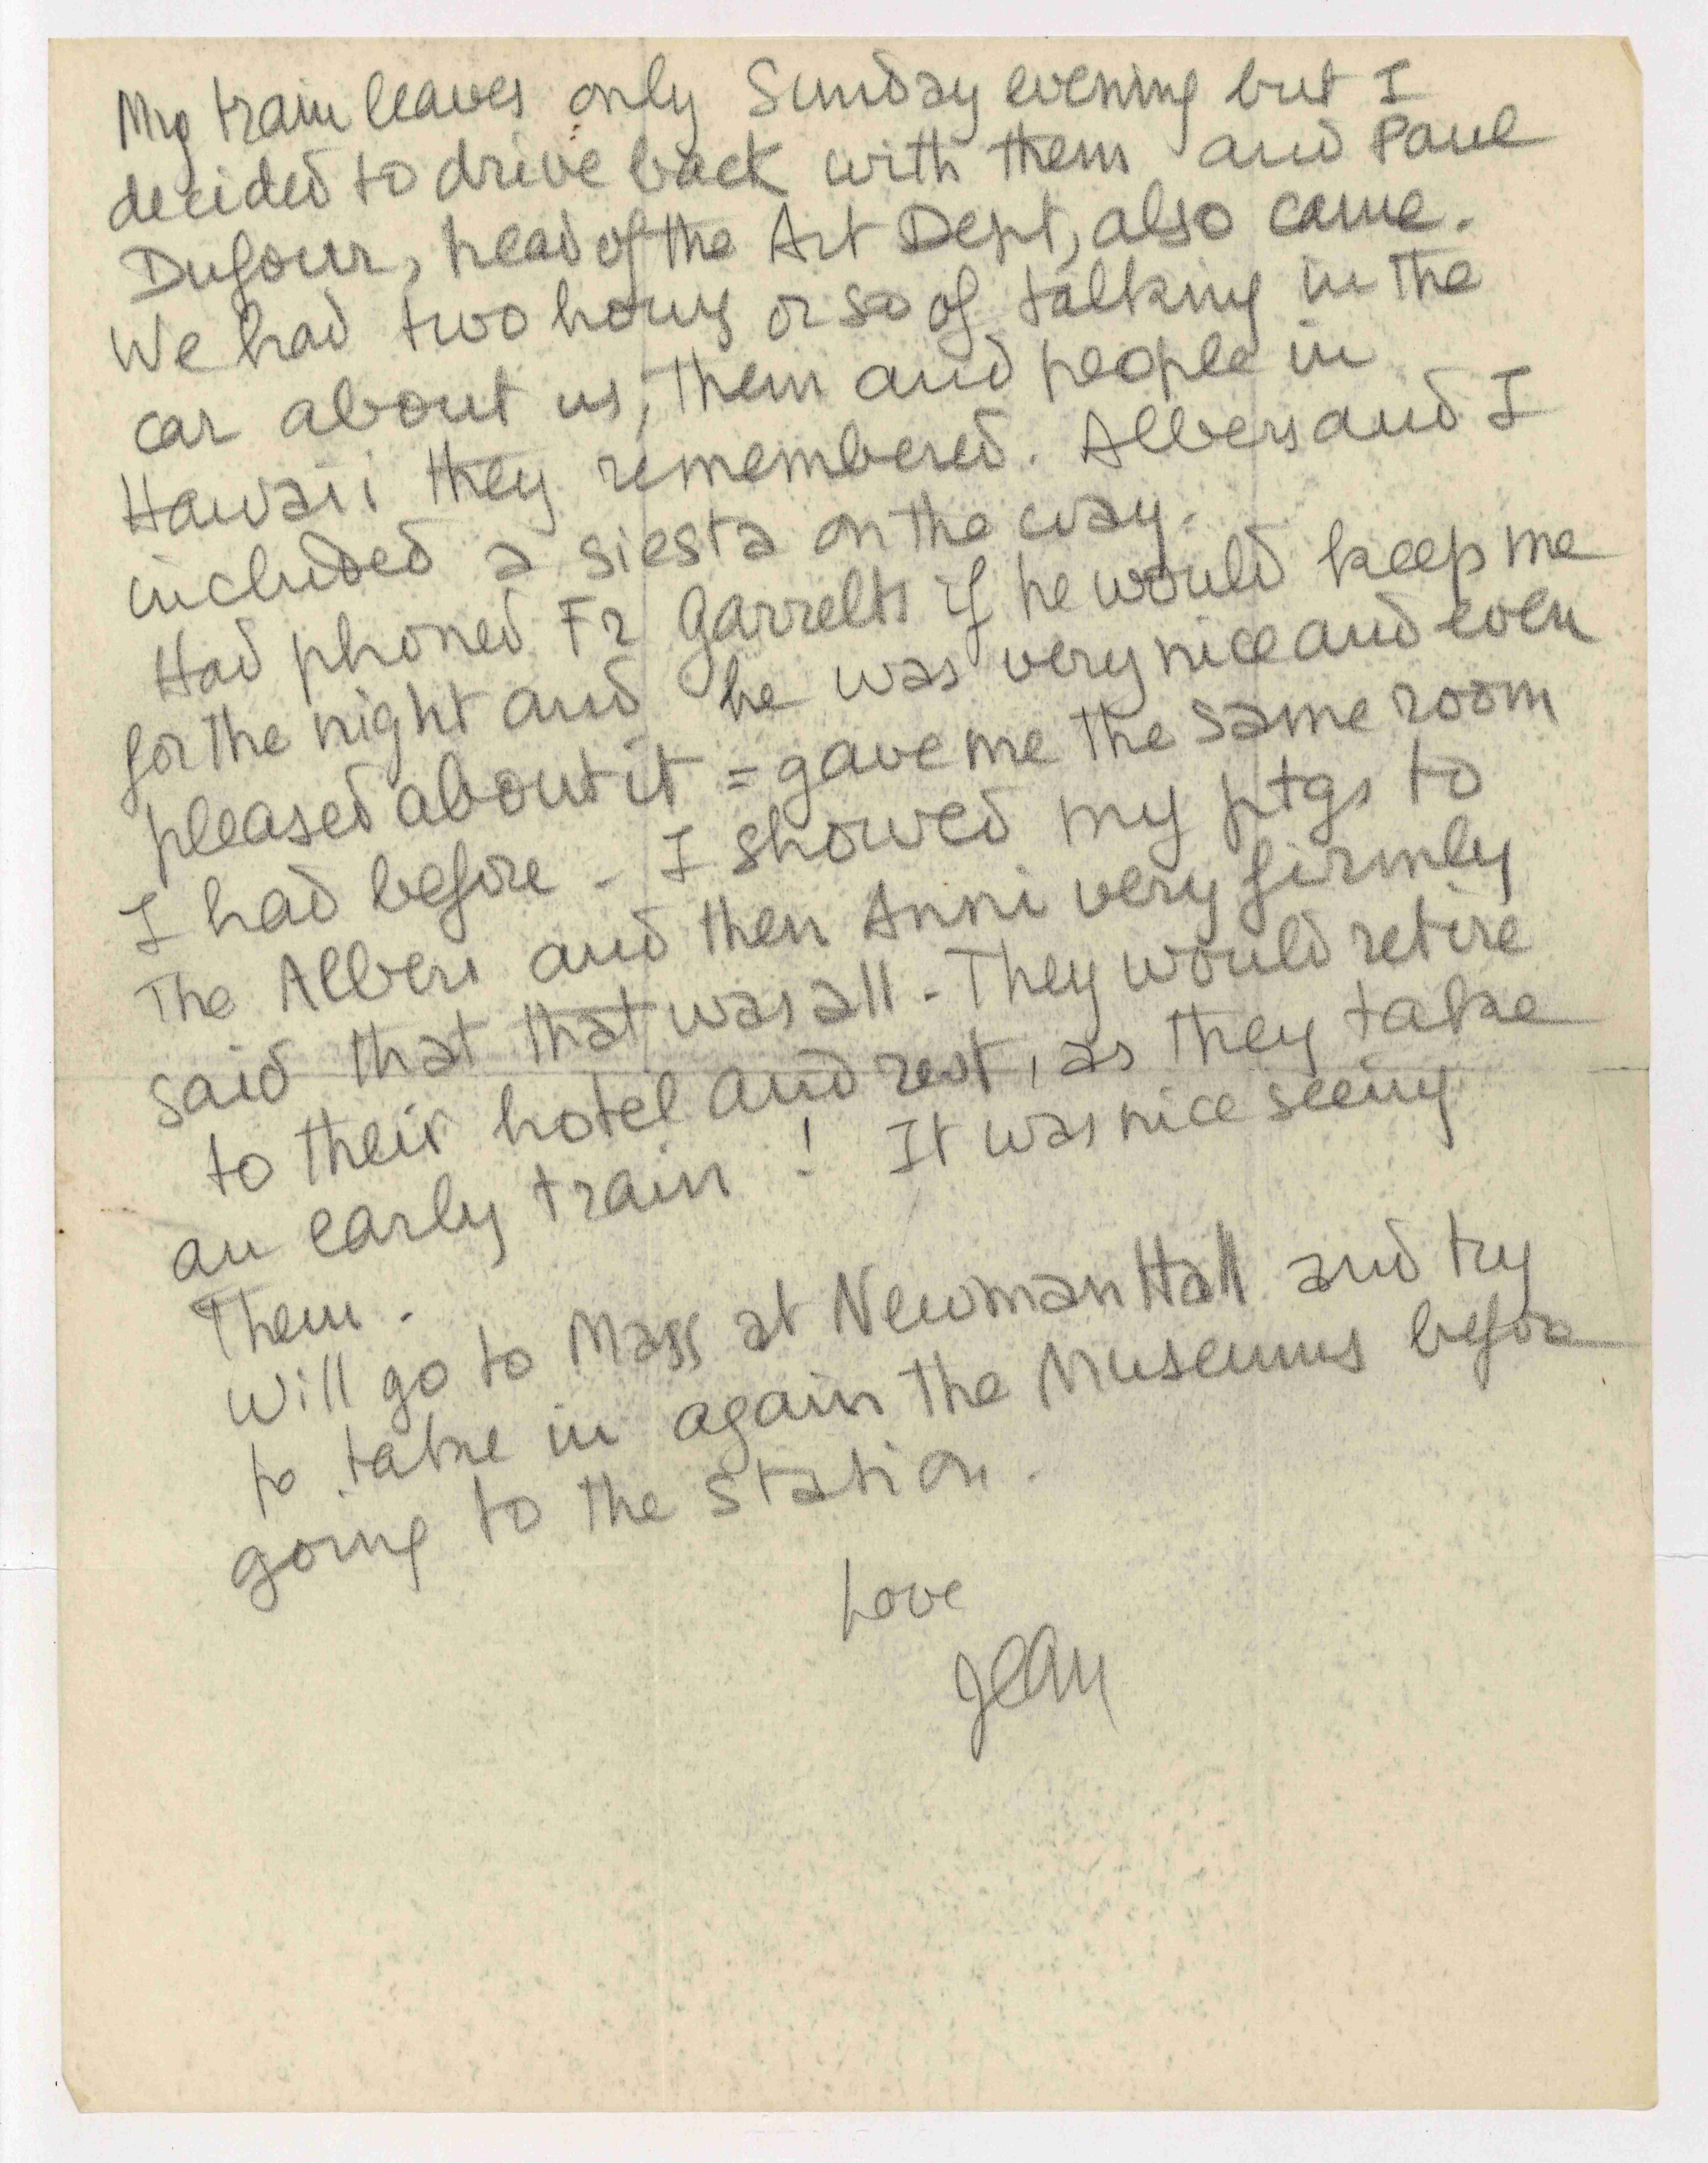 My train leaves only Sunday evening but I
decided to drive back with them and Paul
Dufour, head of the Art Dept, also came.
We had two hours or so of talking in the
car about us, them and people in
Hawaii they remembered. Albers and I
included a siesta on the way.
Had phoned Fr Garrelts if he would keep me
for the night and he was very nice and even
pleased about it = gave me the same room
I had before - I showed my ptgs to
The Albers and then Anni very firmly
said that that was all - They would retire
to their hotel and rest, as they take
an early train ! It was nice seeing
Them -
Will go to Mass at Newman Hall and try
to take in again the Museums before
going to the station.
Love
Jean